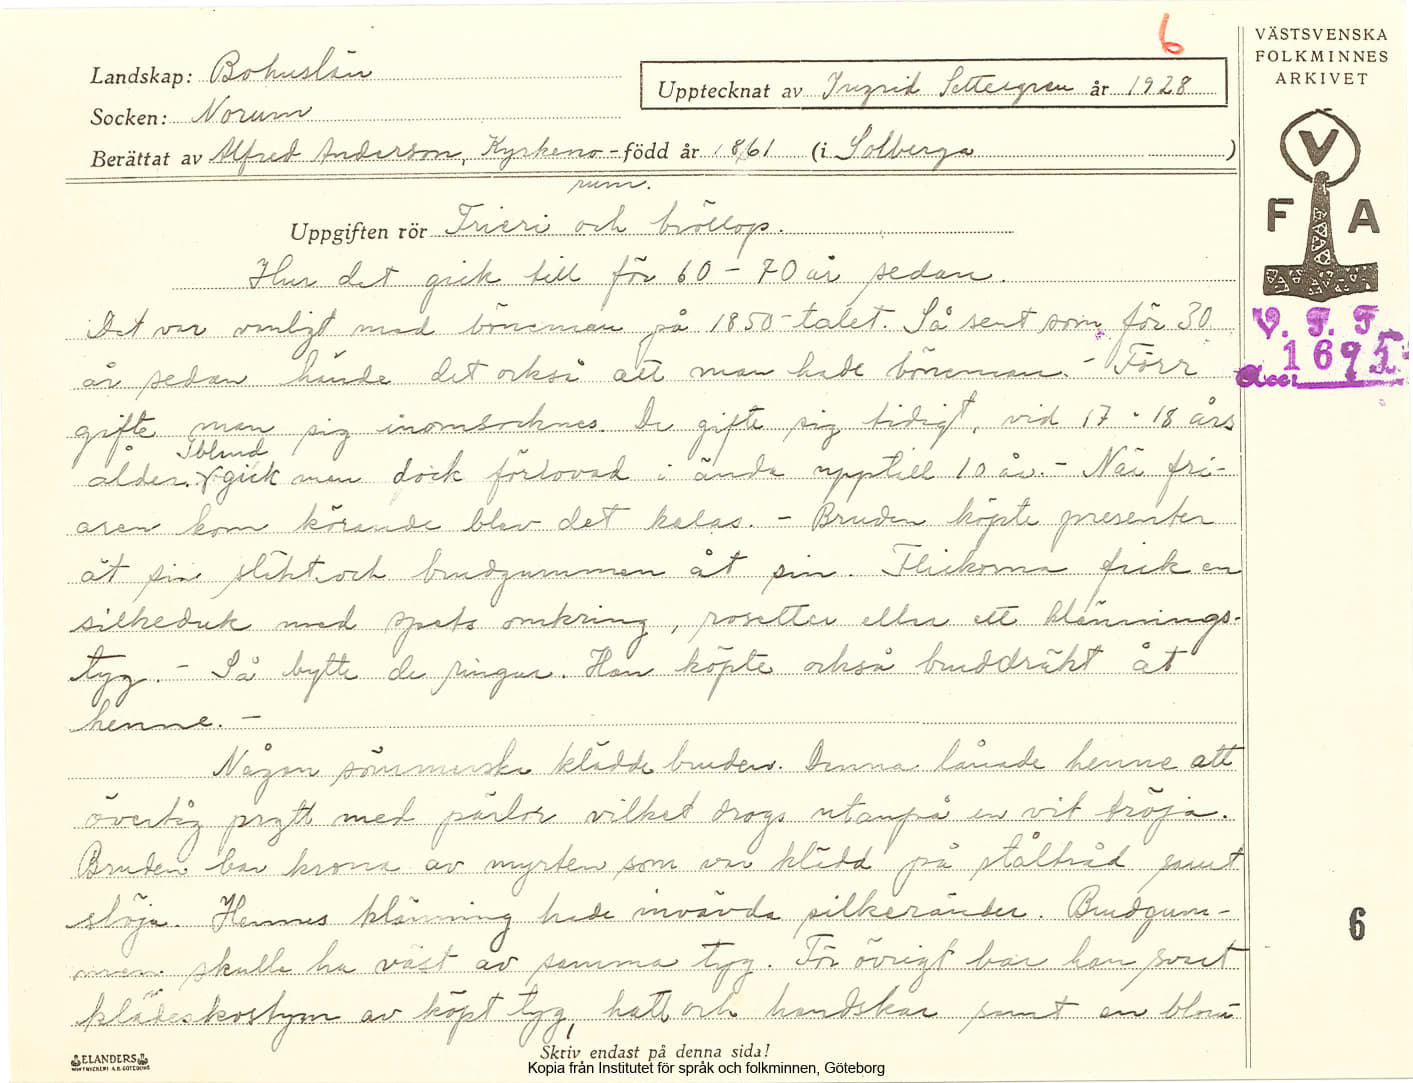 6
VÄSTSVENSKA
FOLKMINNES
ARKIVET
Landskap: Bohuslän
Upptecknat av Ingrid Settergren år 1928
Socken: Norum
Berättat av Alfred Anderson, Kyrkeno- född år 1861 (i Solberga )
rum.
V
F A
Uppgiften rör Frieri och bröllop.
Hur det gick till för 60-70 år sedan.
V. F. F
1695
Acc:
Det var vanligt med böneman på 1850-talet. Så sent som för 30
år sedan hände det också att man hade böneman. - Förr
gifte man sig inomsocknes. De gifte sig tidigt, vid 17 - 18 års
ålder. Ibland gick man dock förlovad i ända upptill 10 år. - När fri-
aren kom körande blev det kalas. - Bruden köpte presenter
åt sin släkt och brudgummen åt sin. Flickorna fick en
silkeduk med spets omkring, rosetter eller ett klännings-
tyg. - Så bytte de ringar. Han köpte också bruddräkt åt
henne. -
Någon sömmerska klädde bruden. Denna lånade henne ett
övertåg prytt med pärlor vilket drogs utanpå en vit tröja.
Bruden bar krona av myrten som var klädd på ståltråd samt
slöja. Hennes klänning hade invävda silkeränder. Brudgum-
men skulle ha väst av samma tyg. För övrigt bar han svart
klädeskostym av köpt tyg, hatt och handskar samt en blom
6
ELANDERS
Skriv endast på denna sida!
Kopia från Institutet för språk och folkminnen, Göteborg